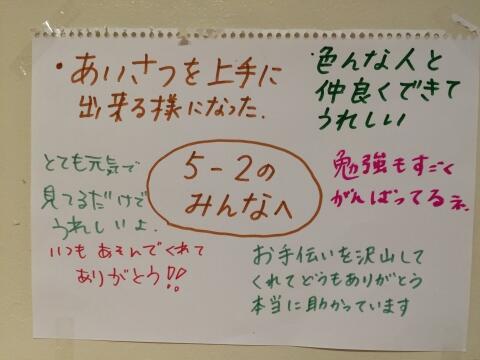 ・あいさつを上手に
出来る様になった.
・色んな人と
仲良くできて
うれしい
5-2の
みんなへ
とても元気で
見てるだけで
うれしいよ.
勉強もすごく
がんばってるネ.
いつもあそんでくれて
ありがとう!!
お手伝いを沢山して
くれてどうもありがとう
本当に助かっています